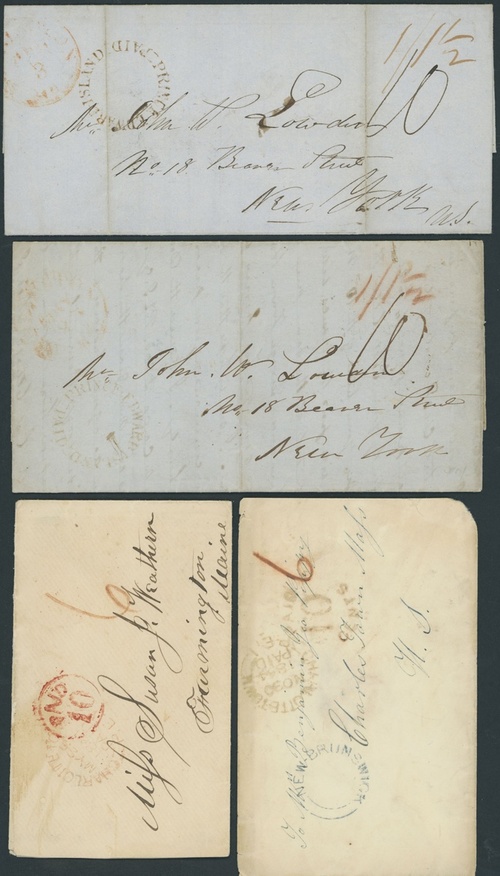 PAID PRINCE EDWARD ISLAND
1/1½
10
Mr John W. Lowden
No. 18 Beaver Street
New York
U.S.
1/1½
10
Mr John W. Lowden
No 18 Beaver Street
New York
PRINCE EDWARD ISLAND
6
10
CHARLOTTE
Miss Susan J. Weathern
Farmington
Maine
6
10
PAID
To Mr Benjamin
Charles Town Mass
U.S.
NEW BRUNSWICK